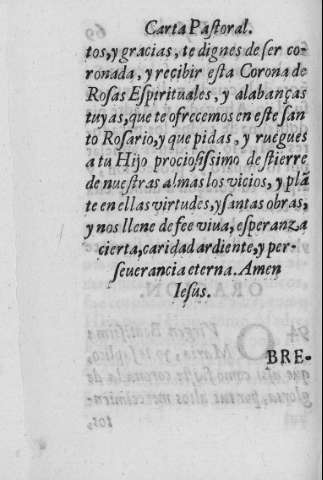 Carta Pastoral.
tos, y gracias, te dignes de ser co-
ronada, y recibir esta Corona de
Rosas Espirituales, y alabanças
tuyas, que te ofrecemos en este san
to Rosario, y que pidas, y ruegues
a tu Hijo prociosissimo destierre
de nuestras almas los vicios, y plā
te en ellas virtudes, y santas obras,
y nos llene de fee viua, esperanza
cierta, caridad ardiente, y per-
seuerancia eterna. Amen
Iesus.
BRE-